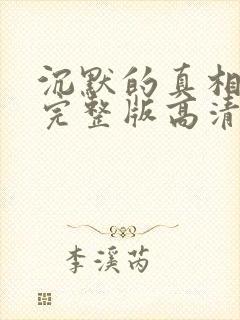 沉默的真相
完整版高清
李溪芮